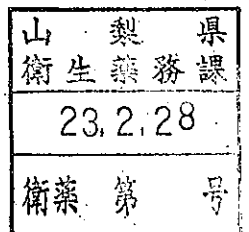 山梨県
衛生薬務課
23.2.28
衛薬第 号